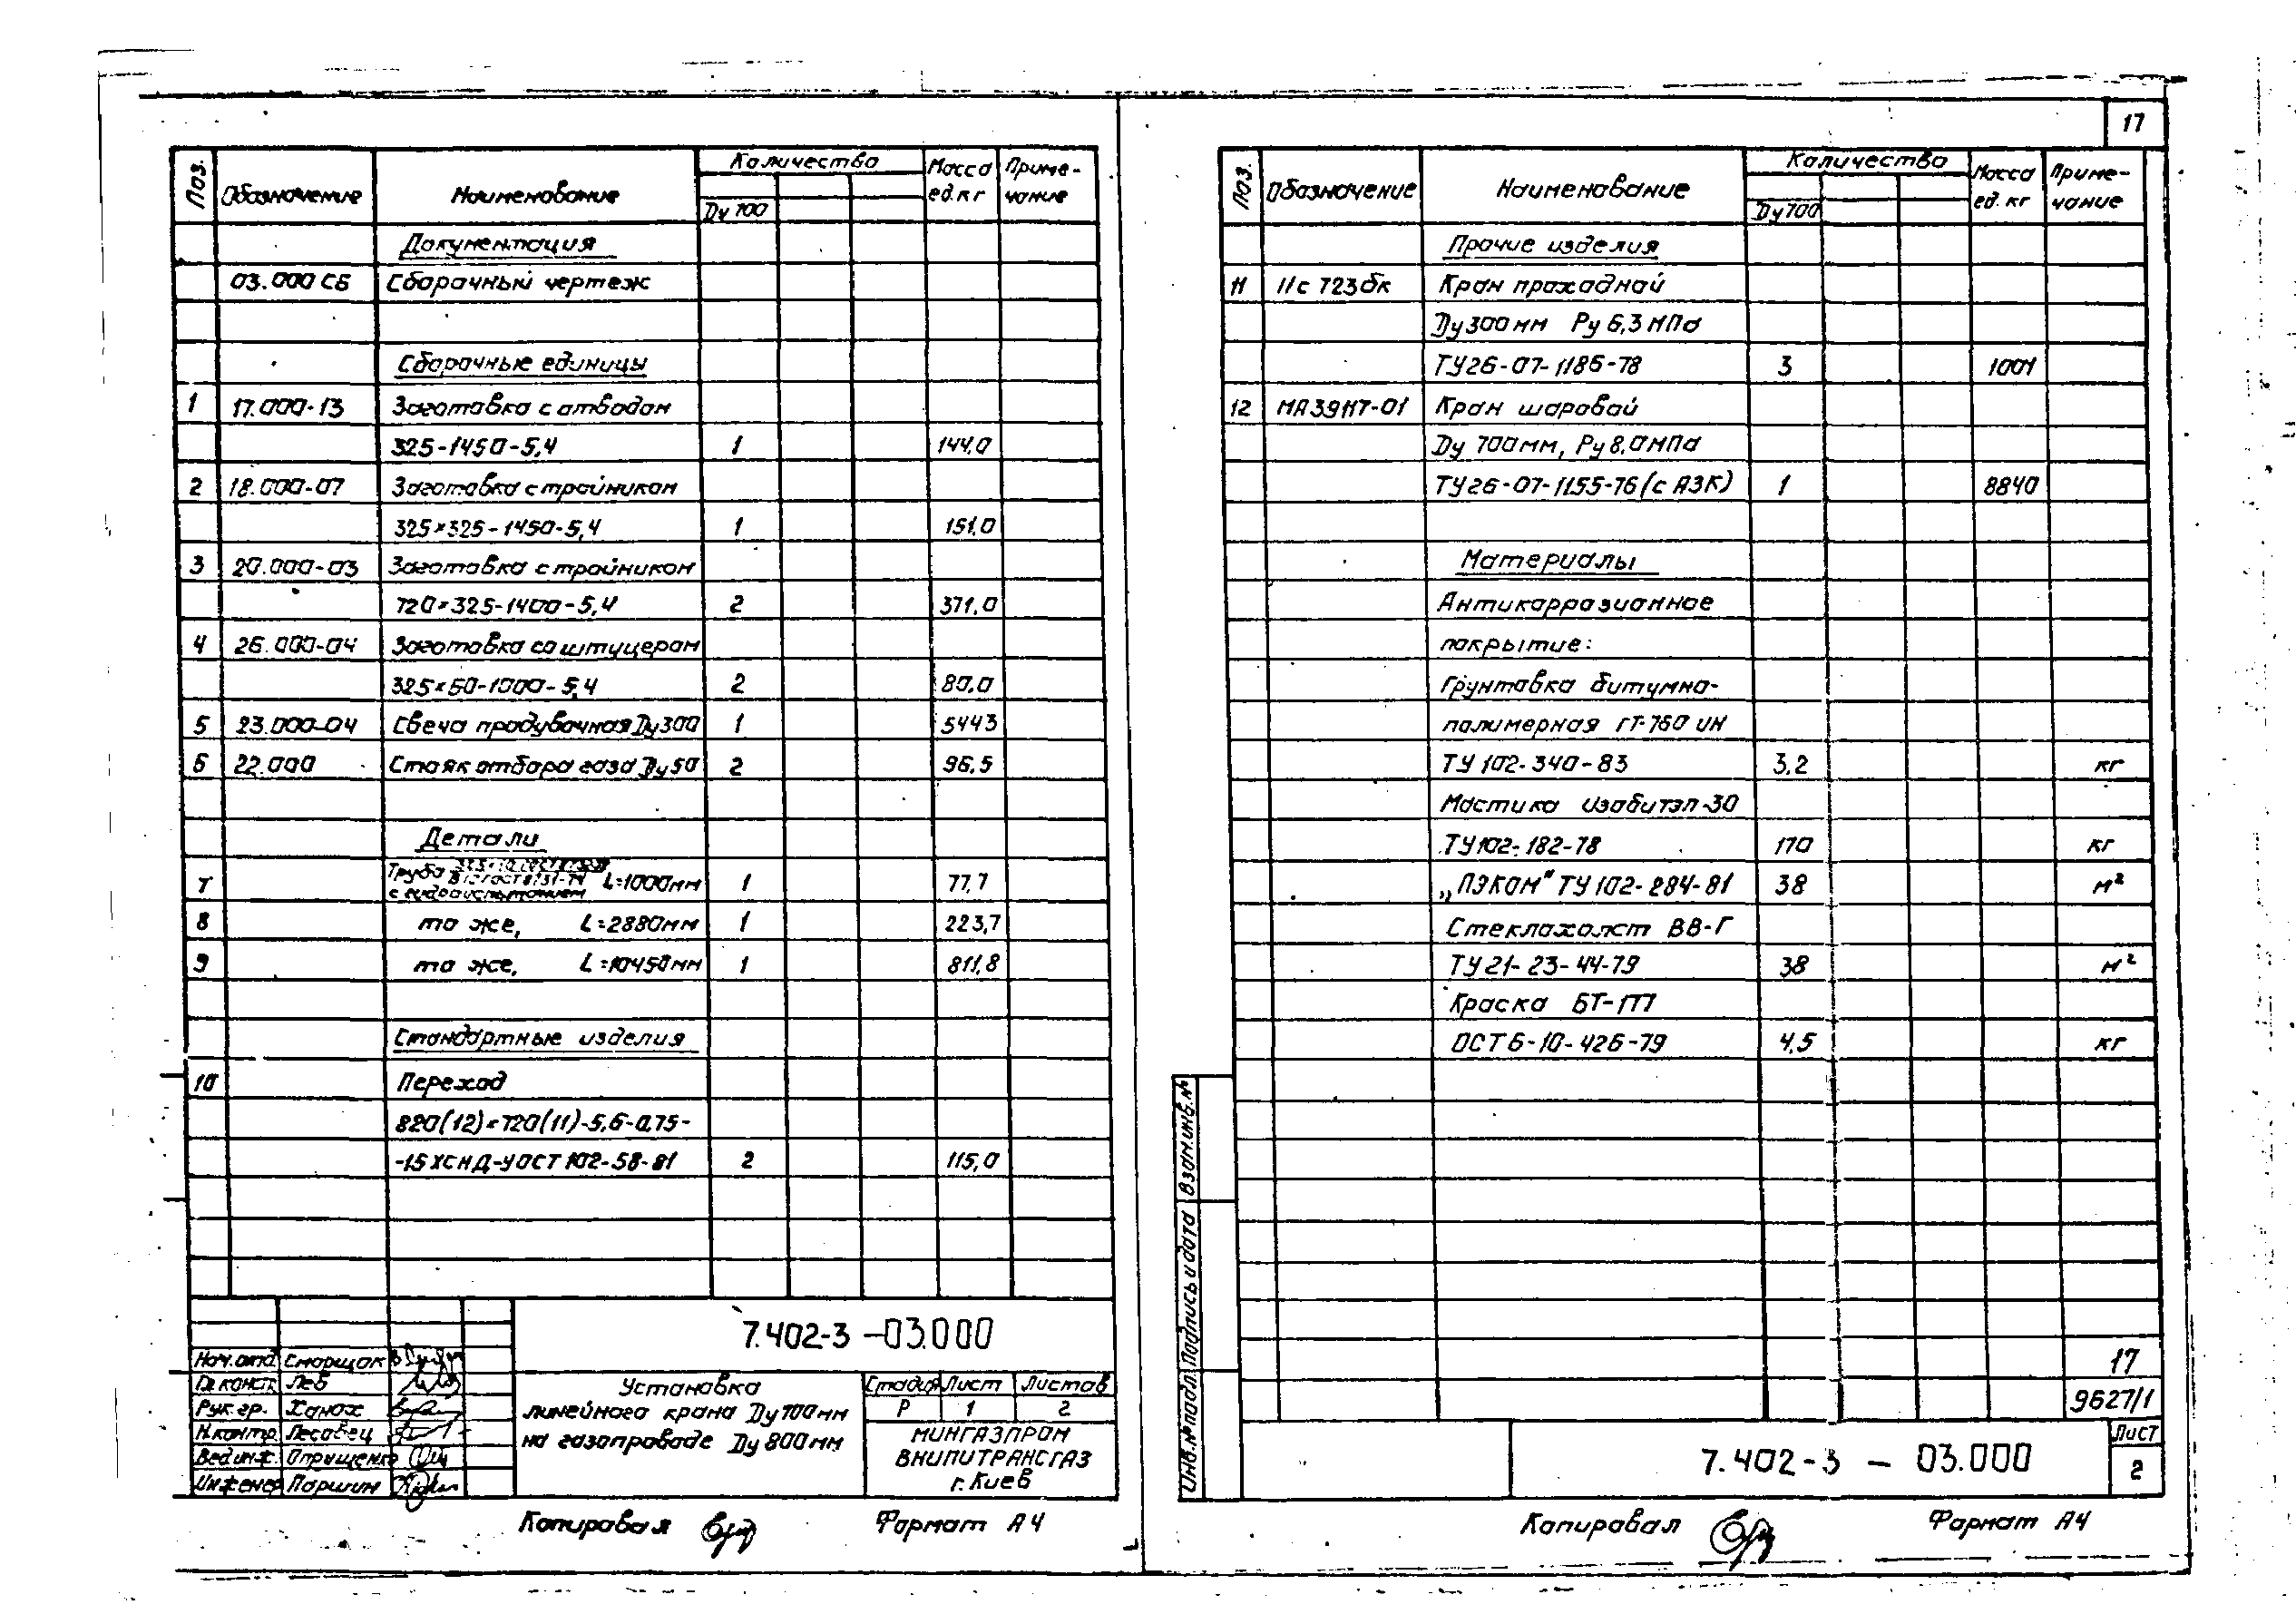 Поз. Обозначение Наименование Количество Масса ед. кг Приме-чание
Ду 700
Документация
03.000 СБ Сборочный чертеж
Сборочные единицы
1 17.000-13 Заготовка с отводом
325-1450-5,4 1 144,0
2 18.000-07 Заготовка с тройником
325×325-1450-5,4 1 151,0
3 20.000-03 Заготовка с тройником
720×325-1400-5,4 2 371,0
4 26.000-04 Заготовка со штуцером
325×50-1000-5,4 2 80,0
5 23.000-04 Свеча продувочная Ду300 1 5443
6 22.000 Стояк отбора газа Ду50 2 96,5
Детали
7 Труба L=1000мм 1 77,7
с гидроиспытанием
8 то же, L=2880мм 1 223,7
9 то же, L=10450мм 1 811,8
Стандартные изделия
10 Переход
820(12)×720(11)-5,6-0,75-
-15ХСНД-У ОСТ 102-58-81 2 115,0
7.402-3 -03.000
Нач.отд. Сморщок
Гл.констр. Лев
Рук.гр. Ханох
Н.контр. Лесовец
Вед.инж. Опрущенко
Инженер Паршин
Установка
линейного крана Ду700мм
на газопроводе Ду 800мм
Стадия Лист Листов
Р 1 2
МИНГАЗПРОМ
ВНИПИТРАНСГАЗ
г. Киев
Копировал Формат А4
17
Поз. Обозначение Наименование Количество Масса ед. кг Приме-чание
Ду 700
Прочие изделия
11 11с 723бк Кран проходной
Ду300мм Ру 6,3 МПа
ТУ26-07-1186-78 3 1001
12 МА39117-01 Кран шаровой
Ду 700мм, Ру 8,0МПа
ТУ26-07-1155-76 (с АЗК) 1 8840
Материалы
Антикоррозионное
покрытие:
Грунтовка битумно-
полимерная ГТ-760 ИН
ТУ 102-340-83 3,2 кг
Мастика Изобитэп-30
ТУ102-182-78 170 кг
„ПЭКОМ" ТУ 102-284-81 38 м²
Стеклохолст ВВ-Г
ТУ21-23-44-79 38 м²
Краска БТ-177
ОСТ 6-10-426-79 4,5 кг
Взам.инв.№
Подпись и дата
Инв.№подл.
17
9627/1
7.402-3 - 03.000
Лист
2
Копировал Формат А4